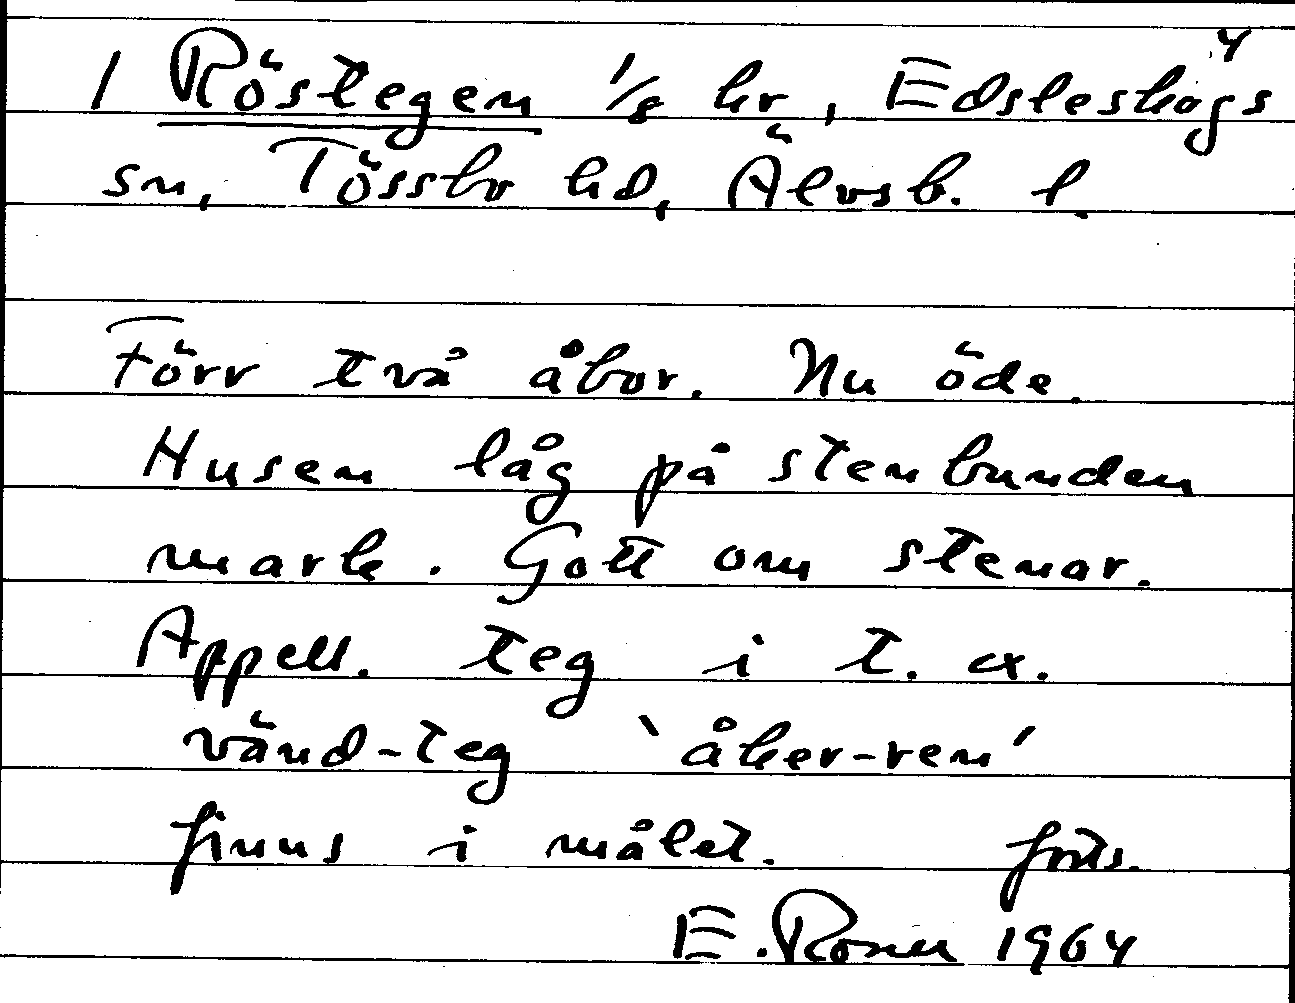 4
1 Röstegen 1/8 hr, Edsleskogs
sn, Tössbo hd, Älvsb. l.
Förr två åbor. Nu öde.
Husen låg på stenbunden
mark. Gott om stenar.
Appell. teg i t. ex.
vänd-teg 'åker-ren'
finns i målet. forts.
E. Rosell 1964